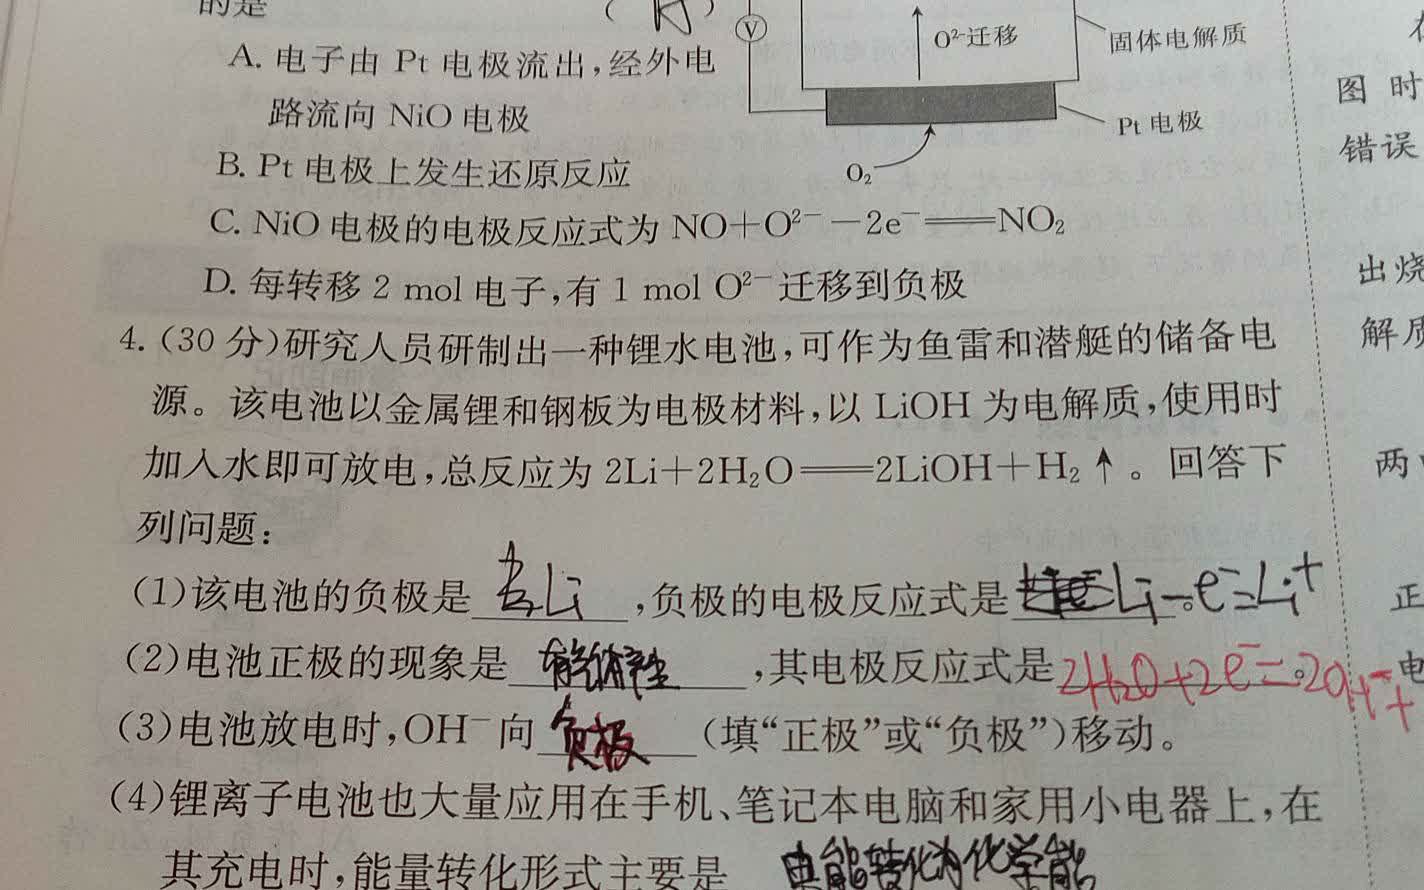 的是
A. 电子由 Pt 电极流出，经外电
路流向 NiO 电极
B. Pt 电极上发生还原反应
C. NiO 电极的电极反应式为 NO+O²⁻−2e⁻══NO₂
D. 每转移 2 mol 电子，有 1 mol O²⁻ 迁移到负极
V
O²⁻迁移
固体电解质
Pt 电极
O₂
4. (30 分)研究人员研制出一种锂水电池，可作为鱼雷和潜艇的储备电
源。该电池以金属锂和钢板为电极材料，以 LiOH 为电解质，使用时
加入水即可放电，总反应为 2Li+2H₂O══2LiOH+H₂↑。回答下
列问题：
(1)该电池的负极是 Li ，负极的电极反应式是 Li−e⁻=Li⁺ 。
(2)电池正极的现象是 有气体产生 ，其电极反应式是 2H₂O+2e⁻=2OH⁻+ 。
(3)电池放电时，OH⁻ 向 负极 (填“正极”或“负极”)移动。
(4)锂离子电池也大量应用在手机、笔记本电脑和家用小电器上，在
其充电时，能量转化形式主要是 电能转化为化学能
图 时
错误
出烧
解质
两
正
电